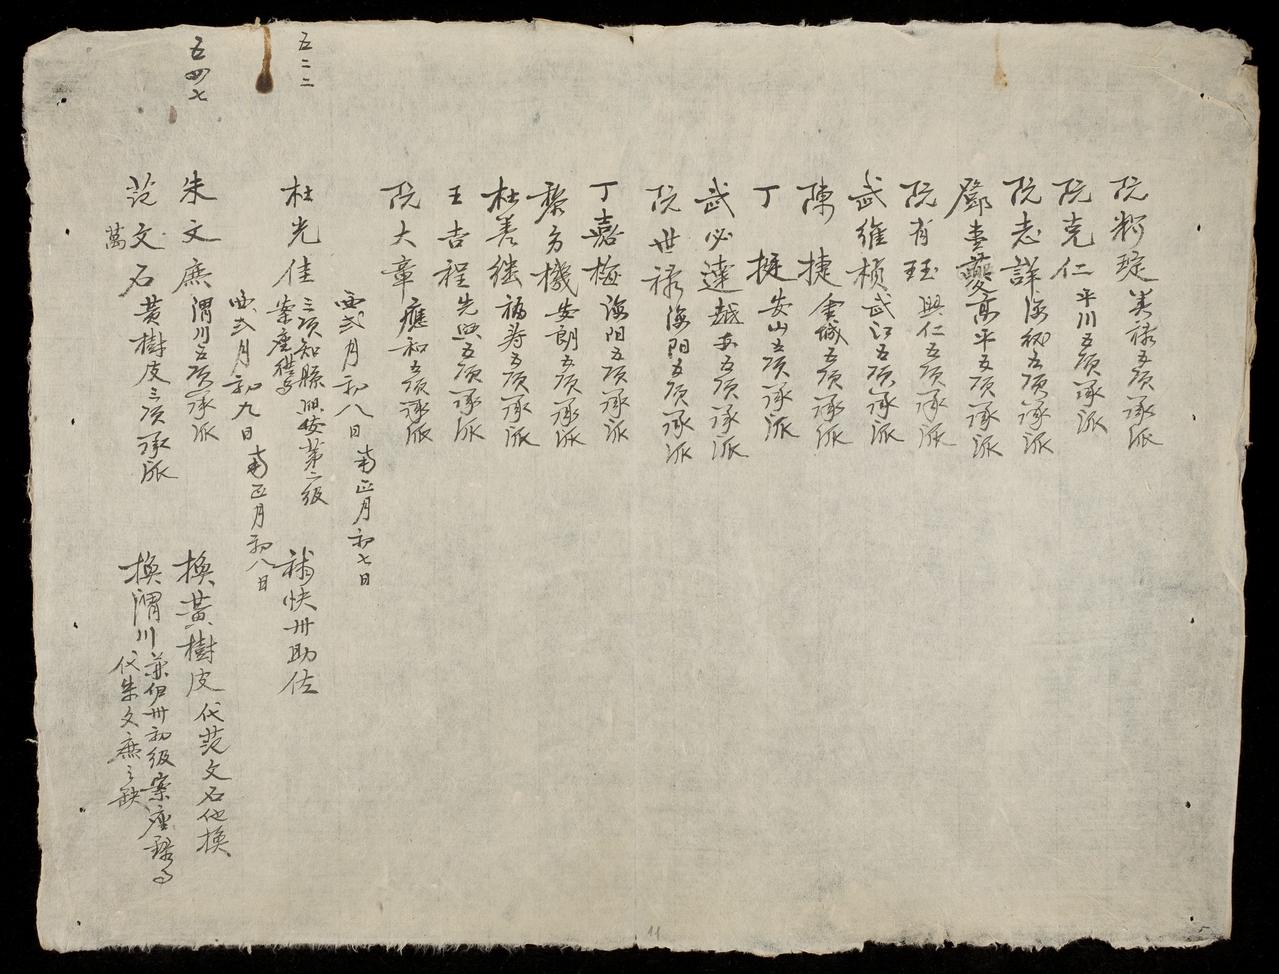 阮 琔 美祿五項承派
阮克仁 平川五項承派
阮志詳 海 五項承派
鄧 夔 高平五項承派
阮有珏 興仁五項承派
武維楨 武江五項承派
陳捷 金城五項承派
丁挺 安山五項承派
武必達 越安五項承派
阮世祿 海陽五項承派
丁嘉 海陽五項承派
黎 機 安朗五項承派
杜善継 福壽五項承派
王吉程 先興五項承派
阮大章 應和五項承派
西弍月初八日 南正月初七日
五二二
杜光佳 三項知縣 第二級 案座 補快卅助佐
西弍月初九日 南正月初八日
五四七
朱文庶 渭川五項承派 換黃樹皮 代范文石他換
范文石 黃樹皮三項承派 換渭川 兼伊卅初級案座 代朱文庶之缺
萬
11